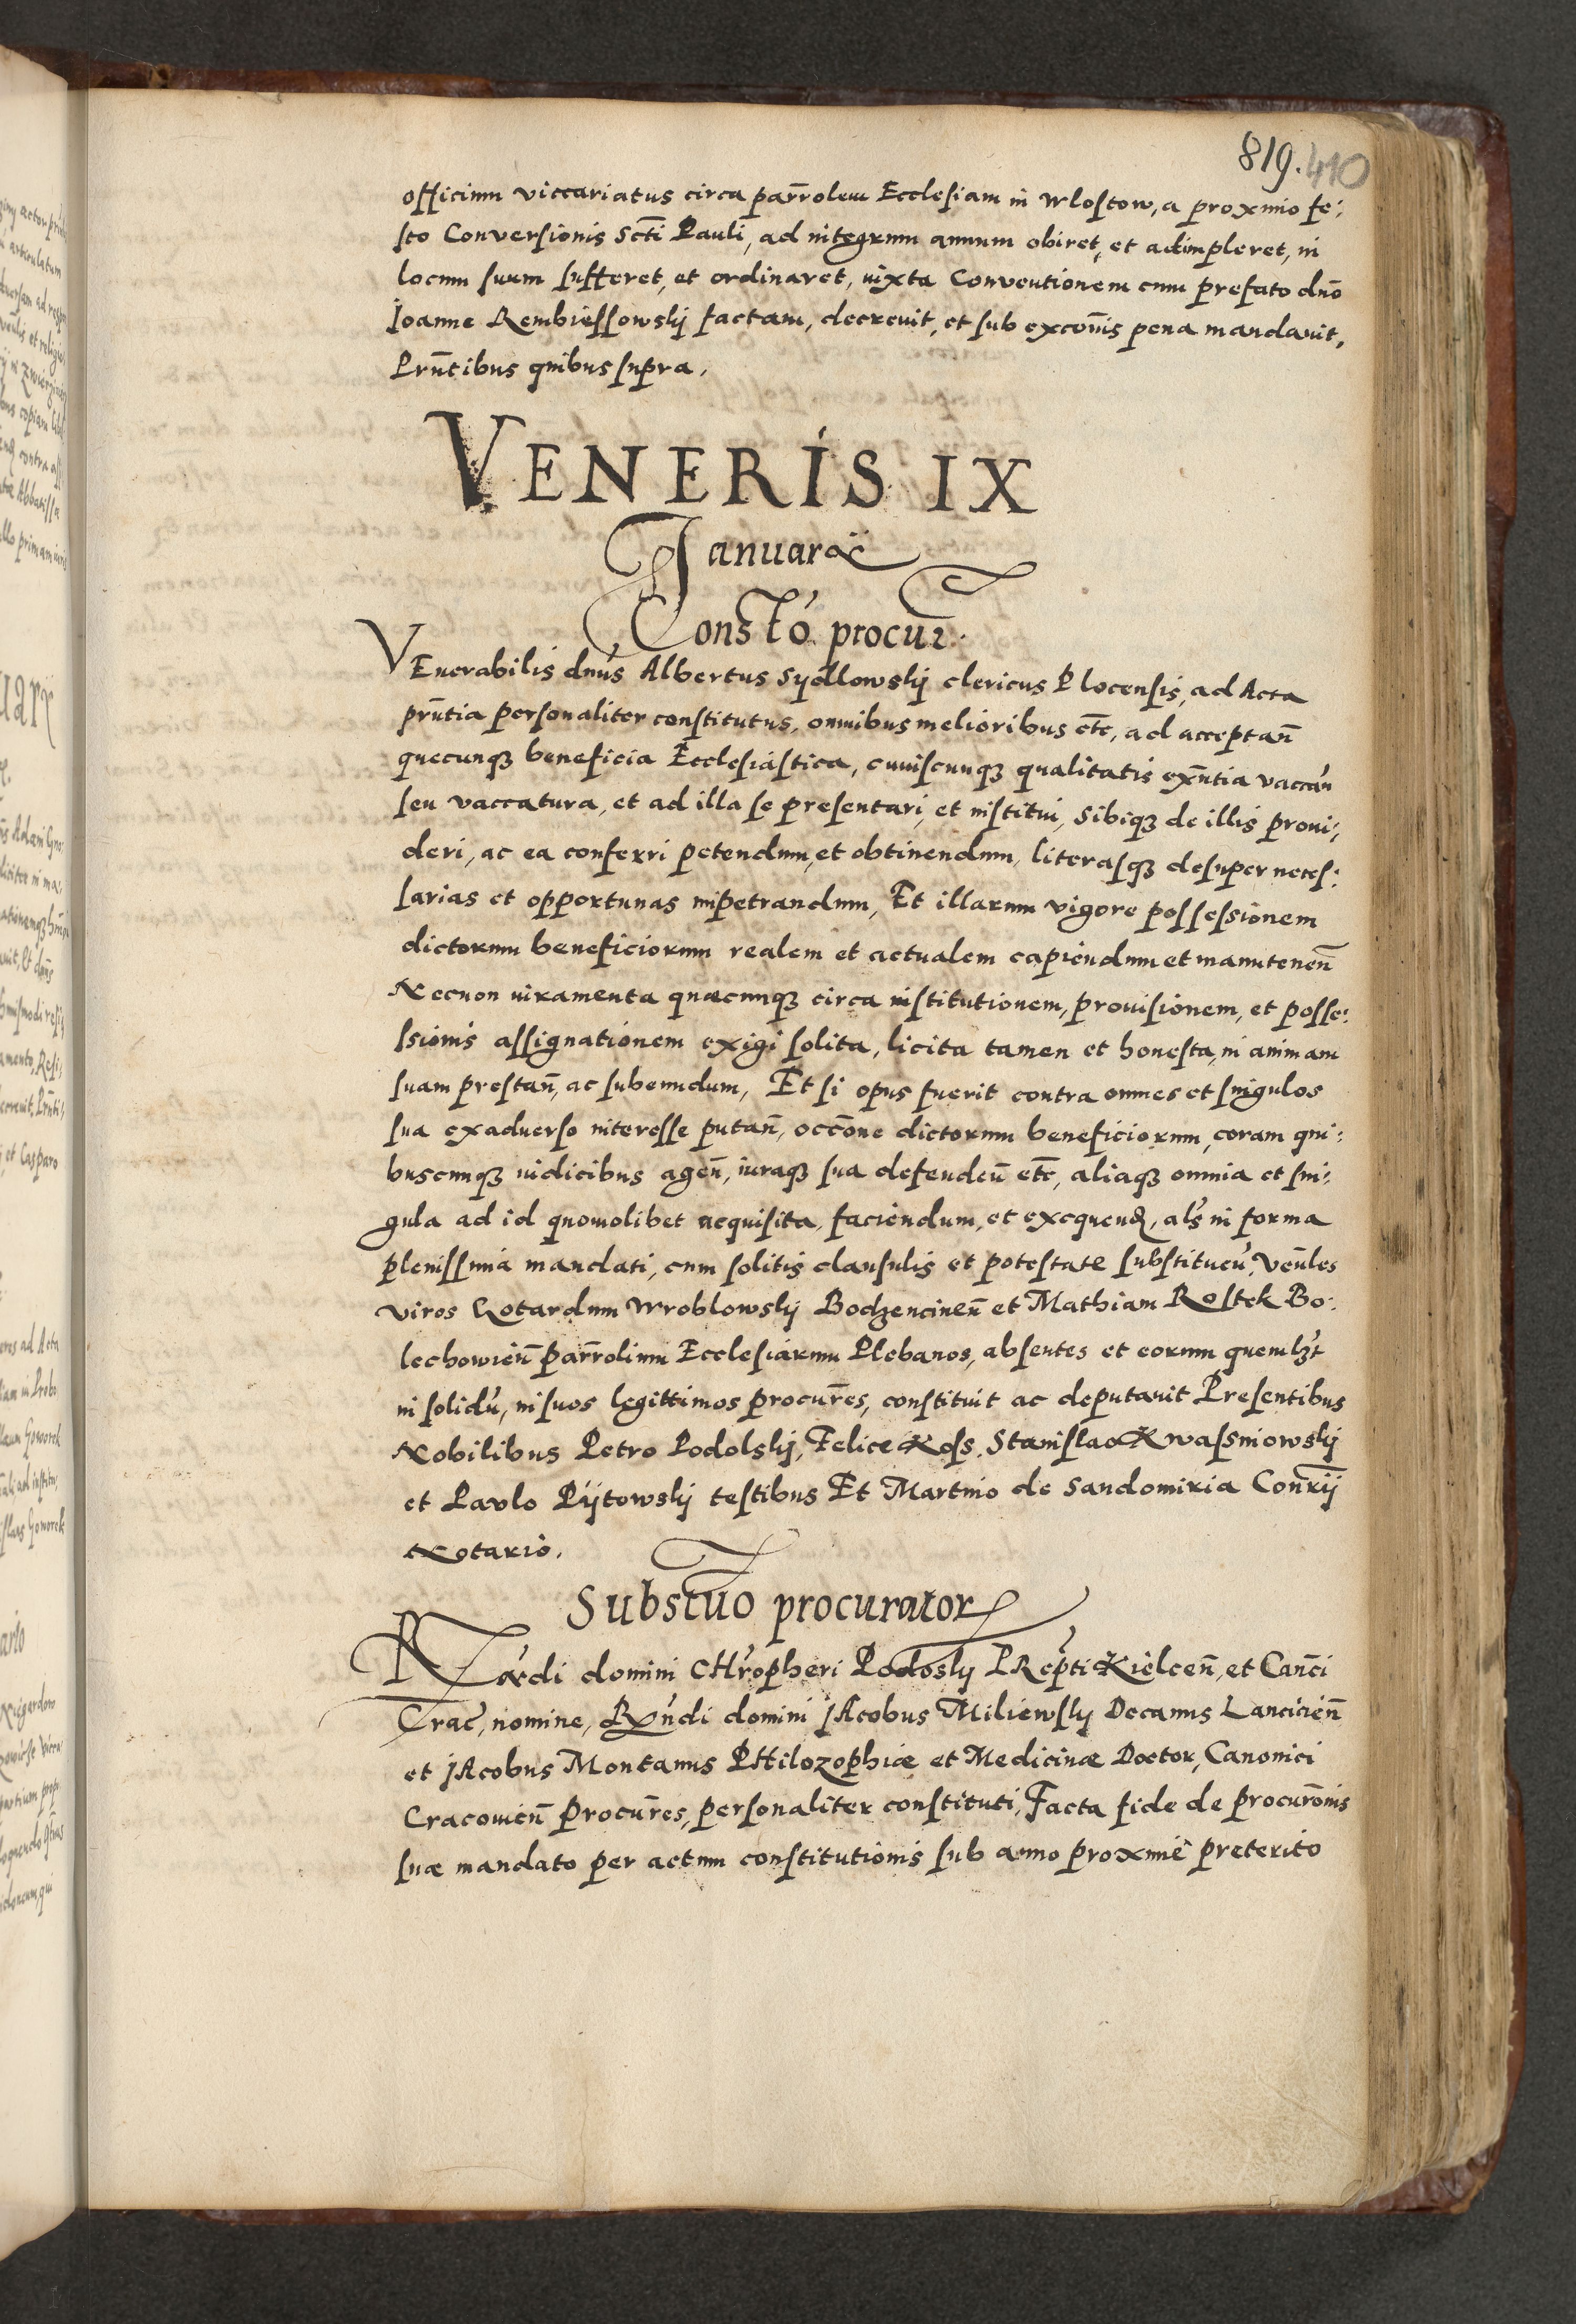 819. 410
officium viccariatus circa parrõlem Ecclesiam in Wlostow, a proximo fe:
sto Conversionis Scti Pauli, ad integrum annum obiret, et adimpleret, in
locum suum sufferet, et ordinaret, iuxta Conventionem cum prefato dño
Joanne Rembiessowskij factam, decrevit, et sub excoῑs pena mandavit,
Prñtibus quibus supra.
VENERIS IX
Januarii
Constõ procur.
VEnerabilis dnus Albertus Sydlowskij clericus Plocensis, ad Acta
prñtia personaliter constitutus, omnibus melioribus etc, ad acceptañ
quecunq3 beneficia Ecclesiastica, cuiuscunq3 qualitatis exñtia vaccañ
seu vaccatura, et ad illa se presentari, et institui, sibiq3 de illis provi:
deri, ac ea conferri petendum, et obtinendum, literasq3 desuper neces:
sarias et opportunas impetrandum, Et illarum vigore possessionem
dictorum beneficiorum realem et actualem capiendum et manuteneñ
Necnon iuramenta quæcunq3 circa institutionem, provisionem, et posse:
ssionis assignationem exigi solita, licita tamen et honesta, in animam
suam prestañ, ac subeundum, Et si opus fuerit contra omnes et singulos
sua exadverso interesse putañ, occõne dictorum beneficiorum, coram qui:
buscunq3 iudicibus ageñ, iuraq3 sua defendeñ etc, aliaq3 omnia et sin:
gula ad id quomolibet requisita, faciendum, et exequend, als in forma
plenissima mandati, cum solitis clausulis et potestate substitueñ, Veñles
viros Gotardum Wroblowskij Bodzencineñ et Mathiam Rostek Bo:
lechowieñ parrõlium Ecclesiarum Plebanos, absentes et eorum quemlzt
in solidũ, in suos legittimos procures, constituit ac deputavit Presentibus
Nobilibus Petro Podolskij, Felice Koss, Stanislao Kwassniowskij
et Pavlo Pijtowskij testibus Et Martino de Sandomiria Consrij
Notario.
Substuo procurator
Rændi domini CHropheri Podoskij PRepti Kielceñ, et Cañci
Crac, nomine, Rxñdi domini JAcobus Miliewskij Decanus Lancicieñ
et JAcobus Montanus PHilozophiæ et Medicinæ Doctor, Canonici
Cracovieñ Procures, personaliter constituti, Facta fide de procurõnis
suæ mandato per actum constitutionis sub anno proxime preterito